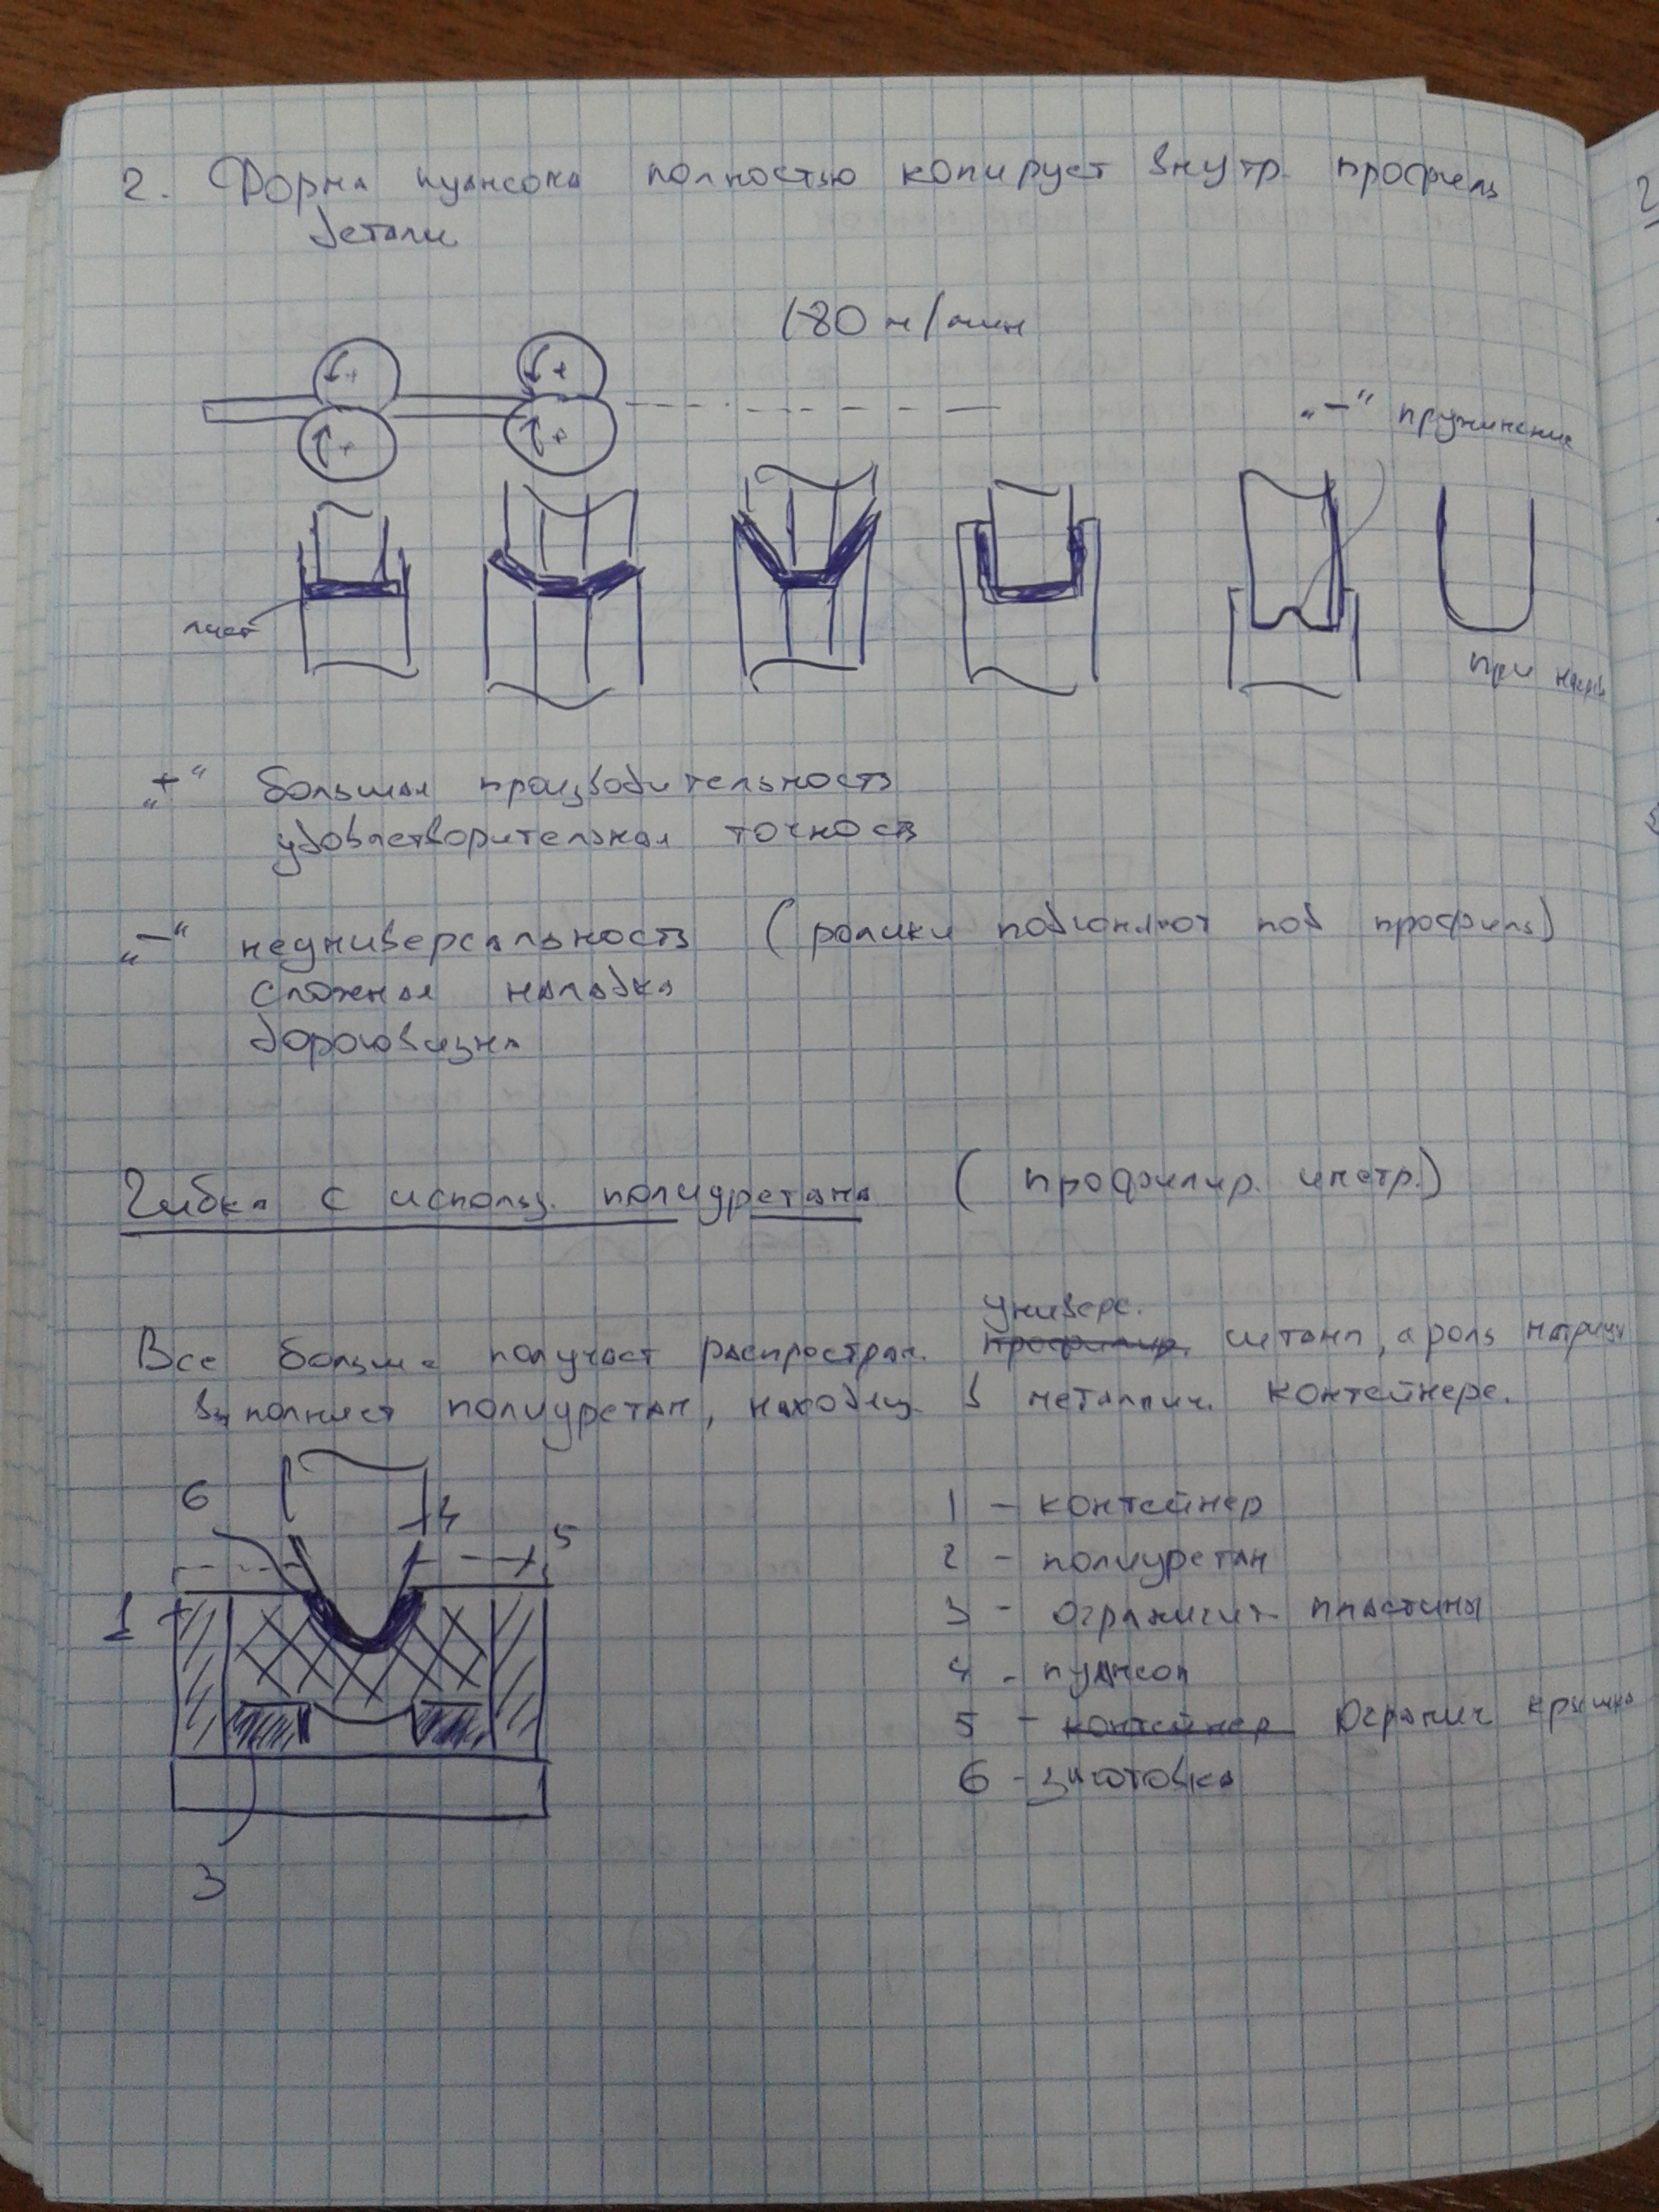 2. Форма пуансона полностью копирует внутр. профиль
детали
180 м/мин
„−“ пружинение
лист
При нагреве
„+“ большая производительность
удовлетворительная точность
„−“ неуниверсальность (ролики подгоняют под профиль)
сложная наладка
дороговизна
Гибка с использ. полиуретана (профилир. инстр.)
универс.
Все больше получает распростран. профилир. штамп, а роль матрицы
выполняет полиуретан, находящ. в металлич. контейнере.
6
4
5
1
3
1 – контейнер
2 – полиуретан
3 – ограничит. пластины
4 – пуансон
5 – контейнер Огранич крышка
6 – заготовка